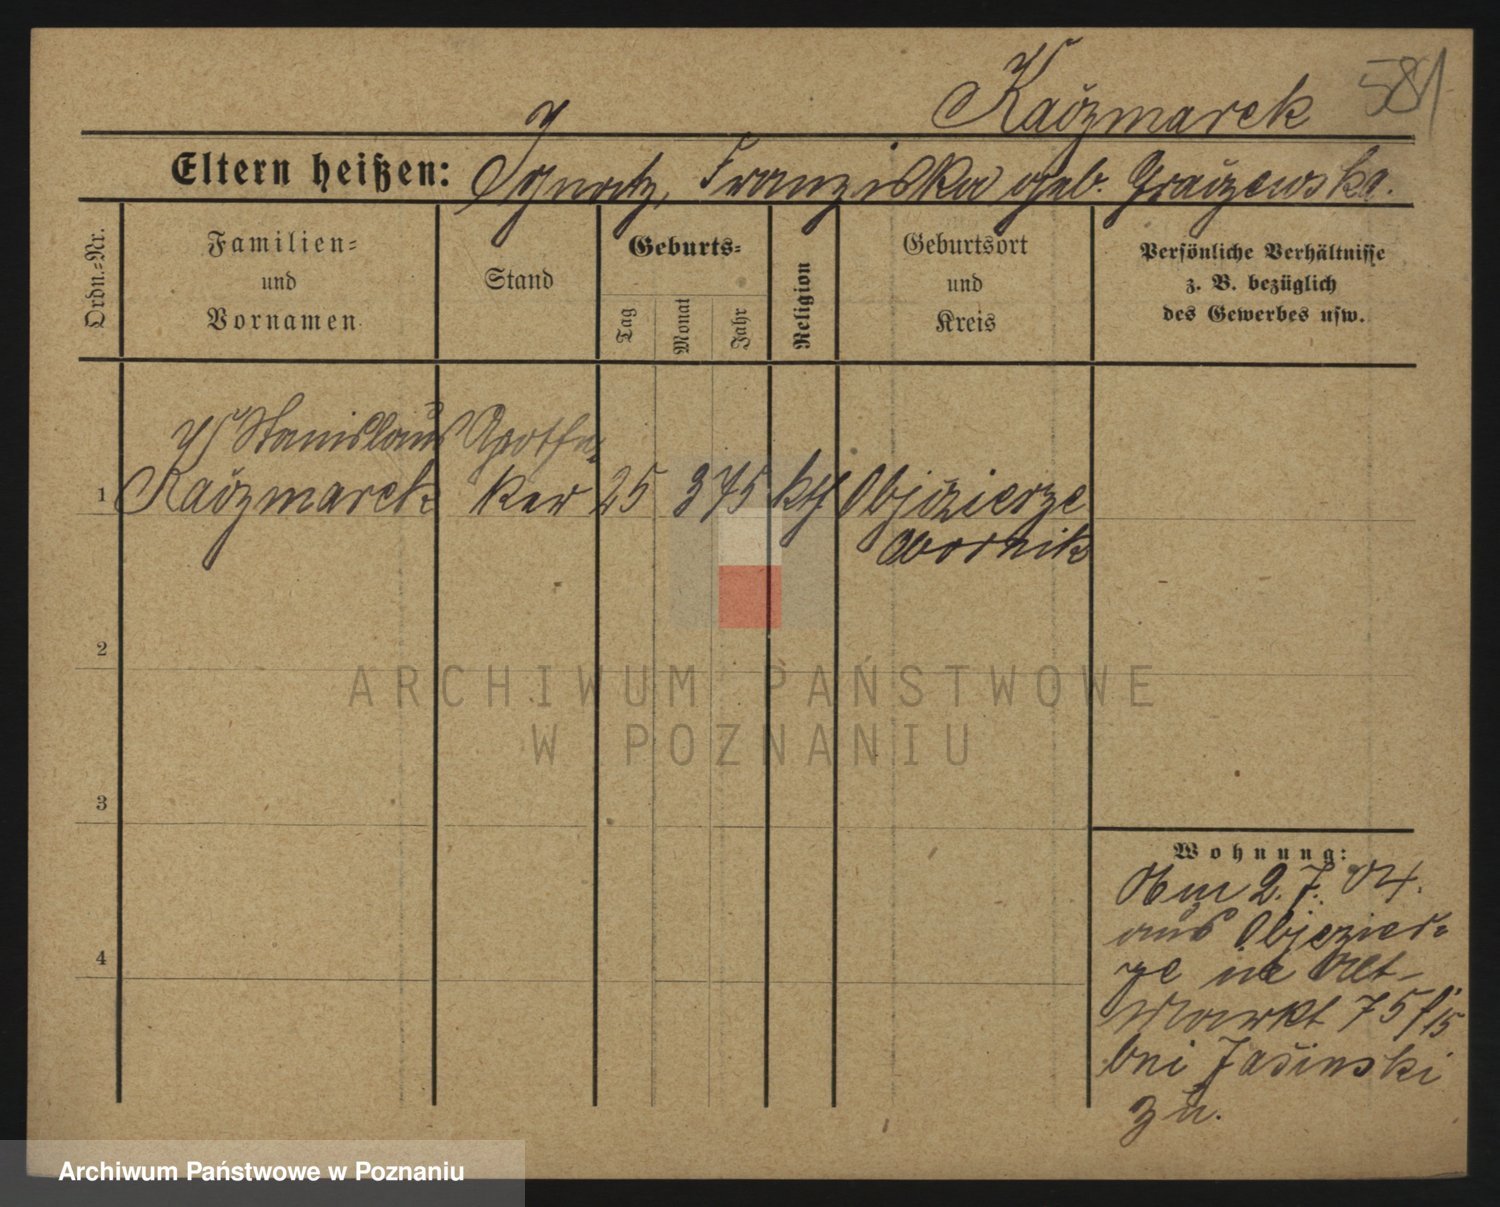 Kaczmarek 581
Eltern heißen: Ignatz, Franziska geb. Graczewska.
Ordn.=Nr.
Familien=
und
Vornamen
Stand
Geburts=
Tag
Monat
Jahr
Religion
Geburtsort
und
Kreis
Persönliche Verhältnisse
z. B. bezüglich
des Gewerbes usw.
Stanislaus Apothe-
1 Kaczmarek ker 25 3 75 kth Objezierze
Obornik
2
3
4
Wohnung:
Am 2. 7. 04.
aus Objezier=
ze in Alt-
Markt 75
bei Jasinski
zu.
ARCHIWUM PAŃSTWOWE
W POZNANIU
Archiwum Państwowe w Poznaniu